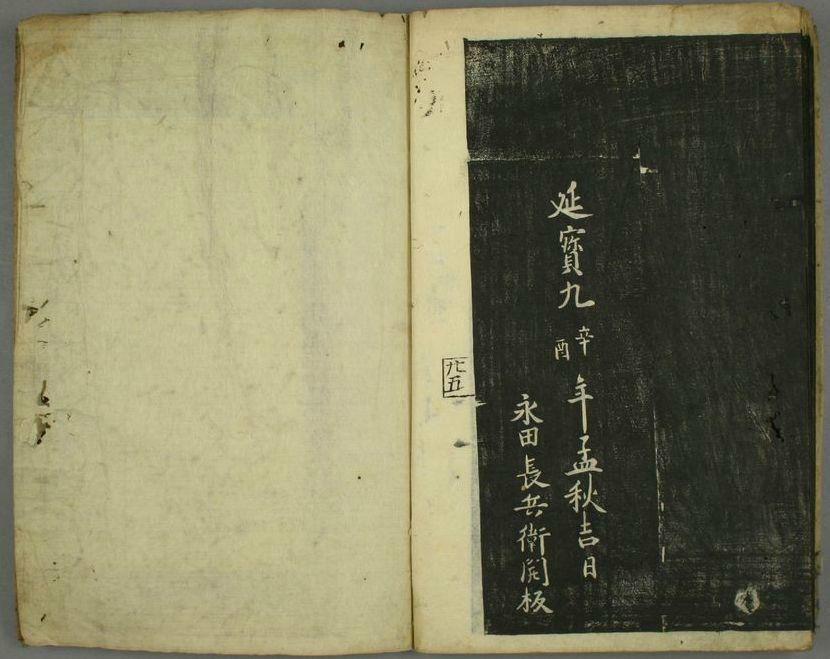 延寶九辛酉年孟秋吉日
永田長兵衛開板